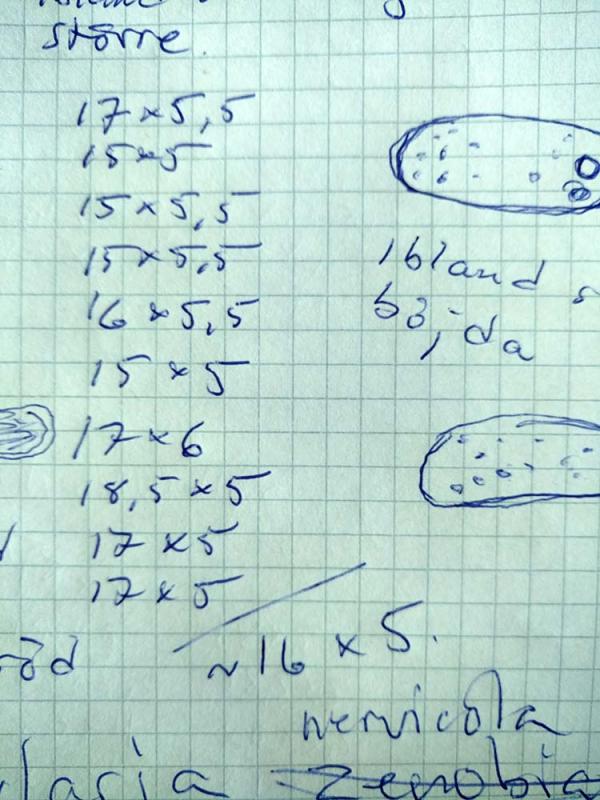 större.
17 × 5,5
15 × 5
15 × 5,5
15 × 5,5
16 × 5,5
15 × 5
17 × 6
18,5 × 5
17 × 5
17 × 5
~ 16 × 5.
Ibland
böjda
röd
nervicola
laria zenobia